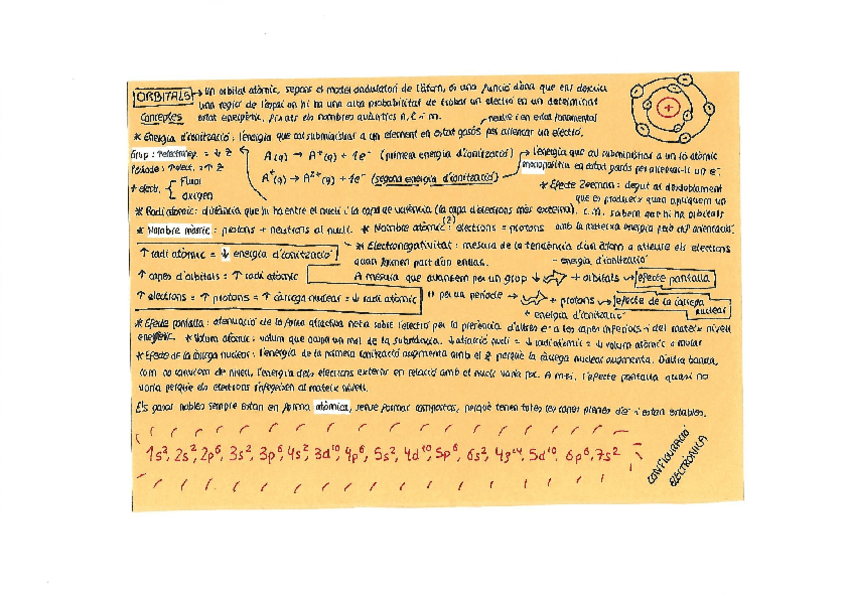 ORBITALS → Un orbital atòmic, segons el model ondulatori de l'àtom, és una funció d'ona que ens descriu
una regió de l'espai on hi ha una alta probabilitat de trobar un electró en un determinat
Conceptes estat energètic, fixats els nombres quàntics n, l i m.
neutre i en estat fonamental
* Energia d'ionització: l'energia que cal subministrar a un element en estat gasós per arrencar un electró.
A(g) → A⁺(g) + 1e⁻ (primera energia d'ionització)
A⁺(g) → A²⁺(g) + 1e⁻ (segona energia d'ionització)
→ l'energia que cal subministrar a un ió atòmic
monopositiu en estat gasós per arencar-li un e⁻.
Període: ↑elect. = ↑ Z
+ electr. Fluor
oxigen
* Efecte Zeeman: degut al desdoblament
que es produeix quan apliquem un
c.m. sabem que hi ha orbitals
amb la mateixa energia però dif. orientació.
* Radi atòmic: distància que hi ha entre el nucli i la capa de valència (la capa d'electrons més externa).
* Nombre màssic: protons + neutrons al nucli. * Nombre atòmic (Z): electrons = protons
* Electronegativitat: mesura de la tendència d'un àtom a atreure els electrons
quan formen part d'un enllaç.
↑ radi atòmic = ↓ energia d'ionització
↑ capes d'orbitals = ↑ radi atòmic
↑ electrons = ↑ protons = ↑ càrrega nuclear = ↓ radi atòmic
- energia d'ionització
A mesura que avancem per un grup ↓ + orbitals → efecte pantalla
" per un període → + protons → efecte de la càrrega nuclear
+ energia d'ionització
* Efecte pantalla: atenuació de la força atractiva neta sobre l'electró per la presència d'altres e⁻ a les capes inferiors i del mateix nivell
energètic. * Volum atòmic: volum que ocupa un mol de la substància. ↓atracció nucli = ↓ radi atòmic = ↓ volum atòmic o molar
* Efecte de la càrrega nuclear: l'energia de la primera ionització augmenta amb el Z perquè la càrrega nuclear augmenta. D'altra banda,
com no canviem de nivell, l'energia dels electrons externs en relació amb el nucli varia poc. A més, l'efecte pantalla quasi no
varia perquè els electrons s'afegeixen al mateix nivell.
Els gasos nobles sempre estan en forma atòmica, sense formar compostos, perquè tenen totes les capes plenes d'e⁻ i estan estables.
1s², 2s², 2p⁶, 3s², 3p⁶, 4s², 3d¹⁰, 4p⁶, 5s², 4d¹⁰, 5p⁶, 6s², 4f¹⁴, 5d¹⁰, 6p⁶, 7s²
CONFIGURACIÓ
ELECTRÒNICA